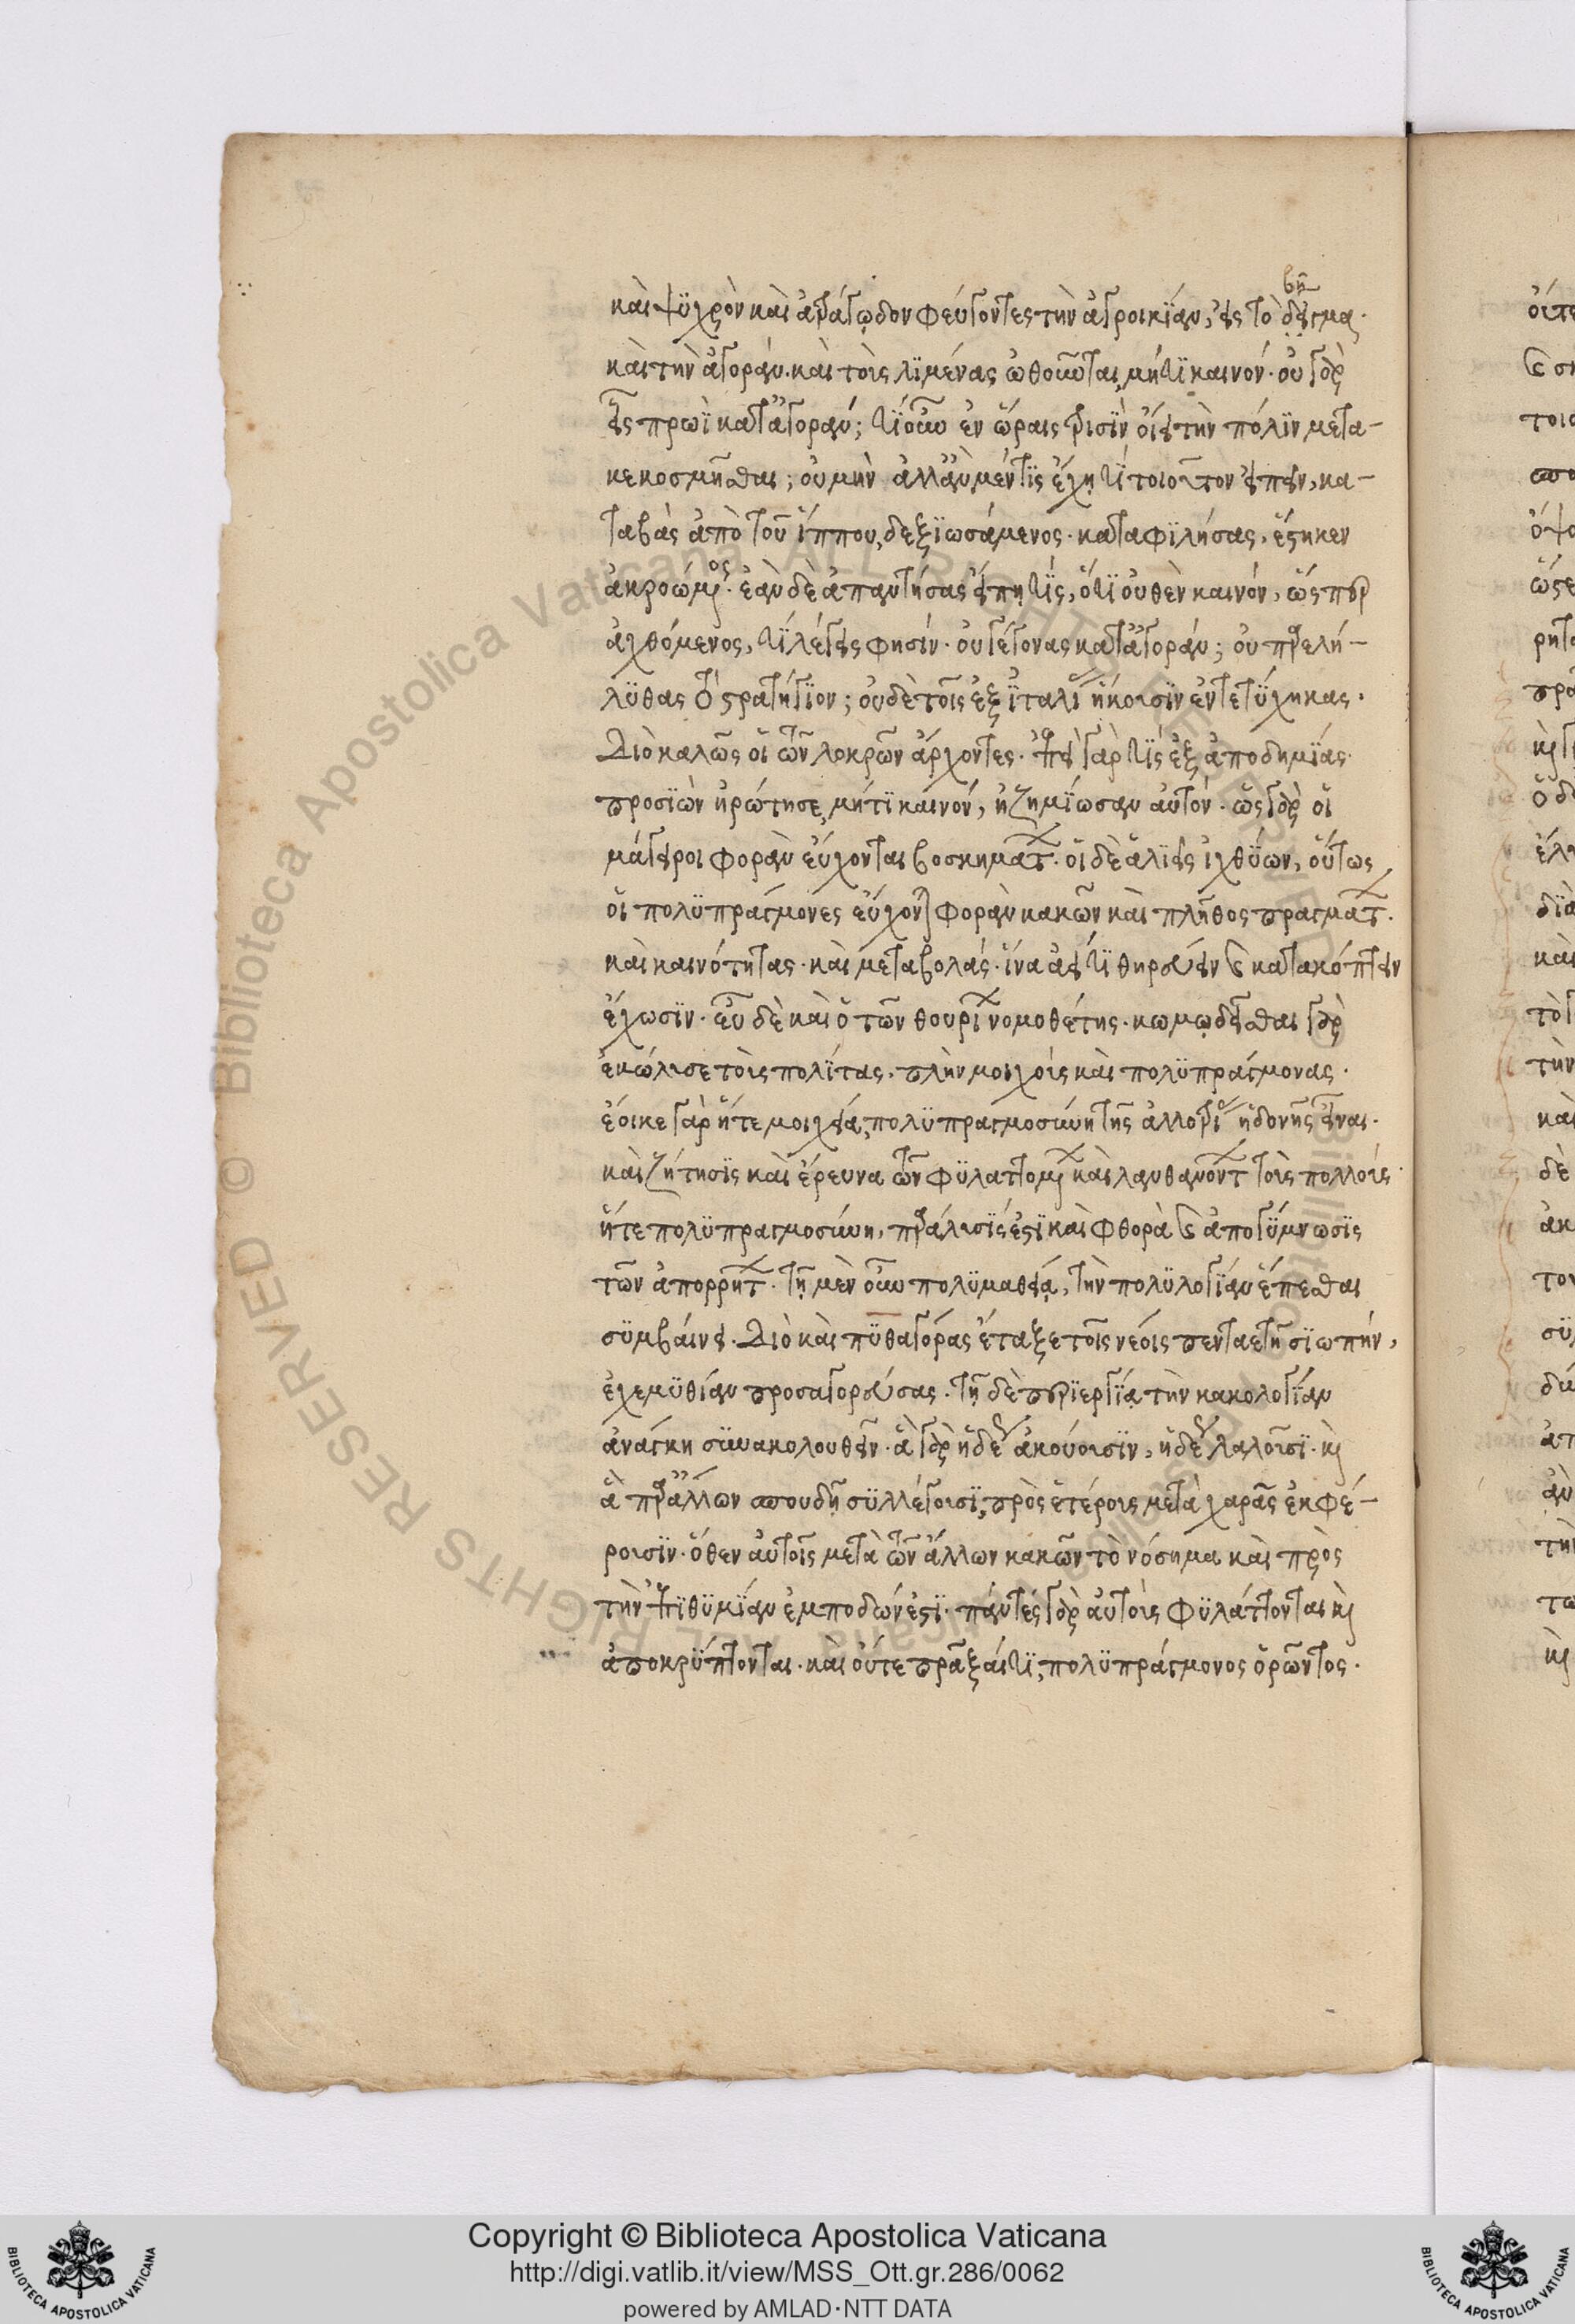 καὶ ψϋχρὸν καὶ ἀτράγῳδον φεύγοντες τὴν ἀγροικΐαν, εἰς τὸ δεῖγμα·
βῆ
καὶ τὴν ἀγορὰν. καὶ τοὺς λϊμένας ὠθοῦνται, μή τϊ καινόν· οὐ γὰρ
ἦς πρωῒ κατ' ἀγοράν; τί οὖν ἐν ὥραις τρισὶν οἴει τὴν πόλϊν μετα-
κεκοσμῆσθαι; οὐ μὴν ἀλλ' ἂν μέν τϊς ἔχῃ τϊ τοιοῦτον εἰπεῖν, κα-
ταβὰς ἀπὸ τοῦ ἵππου, δεξϊωσάμενος· καταφϊλήσας, ἕστηκεν
ἀκροώμενος. ἐὰν δὲ ἀπαντήσας εἴπῃ τϊς, ὅτϊ οὐθὲν καινόν, ὥσπερ
ἀχθόμενος, τΐ λέγεις φησίν· οὐ γέγονας κατ' ἀγοράν; οὐ παρελή-
λϋθας τὸ στρατήγϊον; οὐδὲ τοῖς ἐξ ἰταλίας ἥκουσϊν ἐντετΰχηκας.
Διὸ καλῶς οἱ τῶν λοκρῶν ἄρχοντες. ἐπεὶ γὰρ τϊς ἐξ ἀποδημΐας
προσϊὼν ἠρώτησε, μή τϊ καινόν, ἐζημΐωσαν αὐτόν. ὡς γὰρ οἱ
μάγειροι φορὰν εὔχονται βοσκημάτων. οἱ δὲ ἁλϊεῖς ἰχθΰων, οὕτως
οἱ πολϋπράγμονες εὔχονται φορὰν κακῶν καὶ πλῆθος πραγμάτων.
καὶ καινότητας. καὶ μεταβολάς. ἵνα ἀεί τϊ θηρεύειν καὶ κατακόπτειν
ἔχωσϊν. εὖ δὲ καὶ ὁ τῶν θουρίων νομοθέτης. κωμῳδεῖσθαι γὰρ
ἐκώλυσε τοὺς πολΐτας. πλὴν μοιχοὺς καὶ πολϋπράγμονας.
ἔοικε γὰρ ἥτε μοιχεία, πολϋπραγμοσύνη τῆς ἀλλοτρίας ἡδονῆς εἶναι.
καὶ ζήτησϊς καὶ ἔρευνα τῶν φϋλαττομένων καὶ λανθανόντων τοὺς πολλούς
ἥτε πολϋπραγμοσύνη, παράλυσϊς ἐστϊ καὶ φθορὰ καὶ ἀπογΰμνωσϊς
τῶν ἀπορρήτων. τῇ μὲν οὖν πολϋμαθείᾳ, τὴν πολϋλογΐαν ἕπεσθαι
σϋμβαίνει. Διὸ καὶ πϋθαγόρας ἔταξε τοῖς νέοις πενταετῆ σϊωπήν,
ἐχεμϋθίαν προσαγορεύσας. τῇ δὲ περϊεργΐᾳ τὴν κακολογΐαν
ἀνάγκη συνακολουθεῖν. ἃ γὰρ ἡδέως ἀκούουσϊν, ἡδέως λαλοῦσϊ. καὶ
ἃ παρ' ἄλλων σπουδῇ σϋλλέγουσϊ, πρὸς ἑτέρους μετὰ χαρᾶς ἐκφέ-
ρουσϊν. ὅθεν αὐτοῖς μετὰ τῶν ἄλλων κακῶν τὸ νόσημα καὶ πρὸς
τὴν ἐπϊθϋμΐαν ἐμποδών ἐστϊ. πάντες γὰρ αὐτοὺς φϋλάττονται καὶ
ἀποκρΰπτονται. καὶ οὔτε πρᾶξαί τϊ, πολϋπράγμονος ὁρῶντος.
Copyright © Biblioteca Apostolica Vaticana
http://digi.vatlib.it/view/MSS_Ott.gr.286/0062
powered by AMLAD·NTT DATA